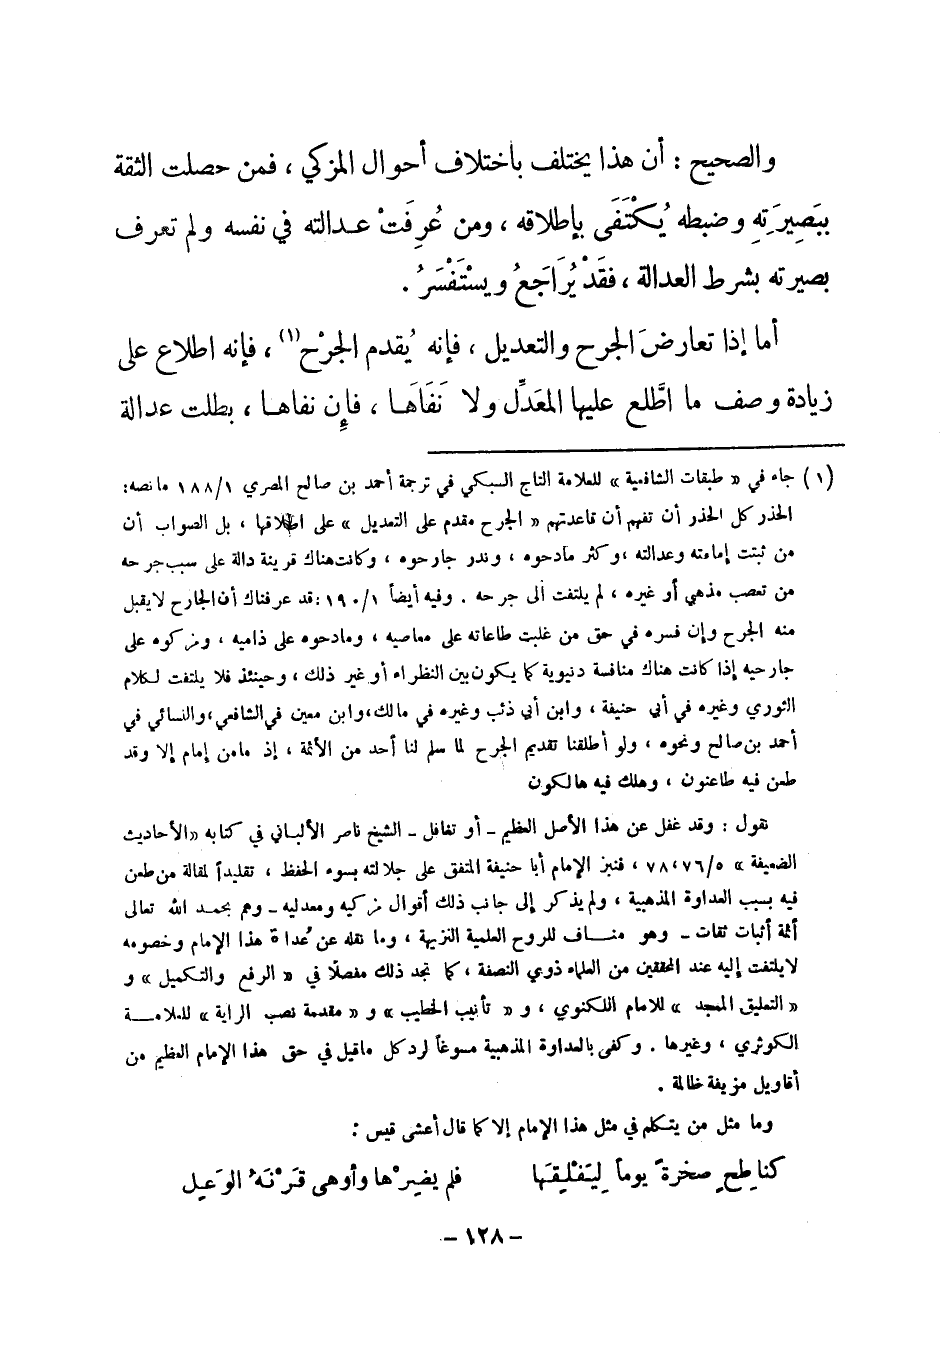 والصحيح : أن هذا يختلف بأختلاف أحوال المزكي ، فمن حصلت الثقة
ببَصِيرَتِهِ وضبطه يُكْتَفَى بإطلاقه ، ومن عُرِفَتْ عدالته في نفسه ولم تعرف
بصيرته بشرط العدالة ، فقَدْ يُرَاجَعُ ويسْتَفْسَرُ .
أما إذا تعارضَ الجرح والتعديل ، فإنه يُقدم الجرْح(١) ، فإنه اطلاع على
زيادة وصف ما اطَّلع عليها المعَدِّل ولا نَفَاهَا ، فإن نفاها ، بطلت عدالة
(١) جاء في « طبقات الشافعية » للعلامة التاج السبكي في ترجمة أحمد بن صالح المصري ١٨٨/١ مانصه:
الحذر كل الحذر أن تفهم أن قاعدتهم « الجرح مقدم على التعديل » على اطلاقها ، بل الصواب أن
من ثبتت إمامته وعدالته ،وكثر مادحوه ، وندر جارحوه ، وكانت هناك قرينة دالة على سبب جرحه
من تعصب مذهبي أو غيره ، لم يلتفت الى جرحه . وفيه أيضاً ١٩٠/١ :قد عرفناك أن الجارح لايقبل
منه الجرح وإن فسره في حق من غلبت طاعاته على معاصيه ، ومادحوه على ذاميه ، ومزكوه على
جارحيه إذا كانت هناك منافسة دنيوية كما يكون بين النظراء أو غير ذلك ، وحينئذ فلا يلتفت لكلام
الثوري وغيره في أبي حنيفة ، وابن أبي ذئب وغيره في مالك،وابن معين في الشافعي ،والنسائي في
أحمد بن صالح ونحوه ، ولو أطلقنا تقديم الجرح لما سلم لنا أحد من الأئمة ، إذ مامن إمام إلا وقد
طعن فيه طاعنون ، وهلك فيه هالكون
نقول : وقد غفل عن هذا الأصل العظيم ـ أو تغافل ـ الشيخ ناصر الألباني في كتابه «الأحاديث
الضعيفة » ٧٨،٧٦/٥ ، فنبز الإمام أبا حنيفة المتفق على جلالته بسوء الحفظ ، تقليداً لمقالة من طعن
فيه بسبب العداوة المذهبية ، ولم يذكر إلى جانب ذلك أقوال مزكيه ومعدليه ـ وهم بحمد الله تعالى
أئمة أثبات ثقات ـ وهو مناف للروح العلمية النزيهة ، وما نقله عن عُداة هذا الإمام وخصومه
لايلتفت إليه عند المحققين من العلماء ذوي النصفة ، كما تجد ذلك مفصلاً في « الرفع والتكميل » و
« التعليق الممجد » للامام اللكنوي ، و « تأنيب الخطيب » و « مقدمة نصب الراية » للعلامة
الكوثري ، وغيرها . وكفى بالعداوة المذهبية مسوغاً لرد كل ماقيل في حق هذا الإمام العظيم من
أقاويل مزيفة ظالمة .
وما مثل من يتكلم في مثل هذا الإمام إلا كما قال أعشى قيس :
كناطِحٍ صخرةً يوماً لِيَفْلِقَهَا فلم يضِرْها وأوهى قَرْنَهُ الوَعِل
– ١٢٨ –